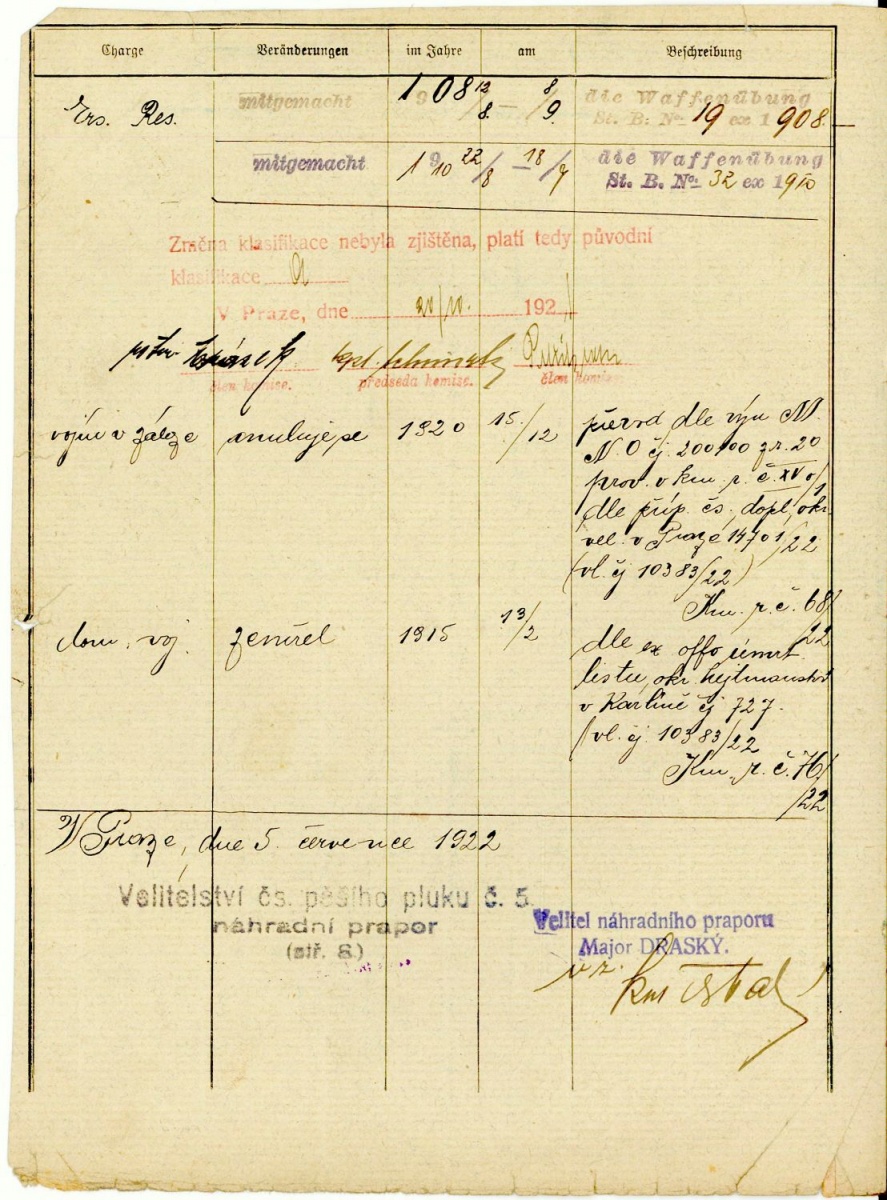 Charge Veränderungen im Jahre am Beschreibung
Ers. Res. mitgemacht 1908 12/8 – 8/9 die Waffenübung
St. B. No 19 ex 1908
mitgemacht 1910 22/8 – 18/9 die Waffenübung
St. B. No. 32 ex 1910
Změna klasifikace nebyla zjištěna, platí tedy původní
klasifikace A
V Praze, dne 20/10. 192
člen komise. předseda komise. člen komise.
vojín v záloze anuluje se 1920 15./12 převod dle výn M.
N. O čj 200100 z r. 20
prov. v km. r. č. XV 0/1
dle příp. čs. dopl. okr.
vel. v Praze 14701/22
(vl. čj 10383/22)
Km. r. č. 68/22
dom. voj. zemřel 1915 13/2 dle ex offo úmrt.
listu, okr. hejtmanství
v Karlíně čj 727.
(vl. čj. 10383/22
Km. r. č. 76/22
V Praze, dne 5. července 1922
Velitelství čs. pěšího pluku č. 5.
náhradní prapor
(stř. 8.)
Velitel náhradního praporu
Major DRASKÝ.
v z.